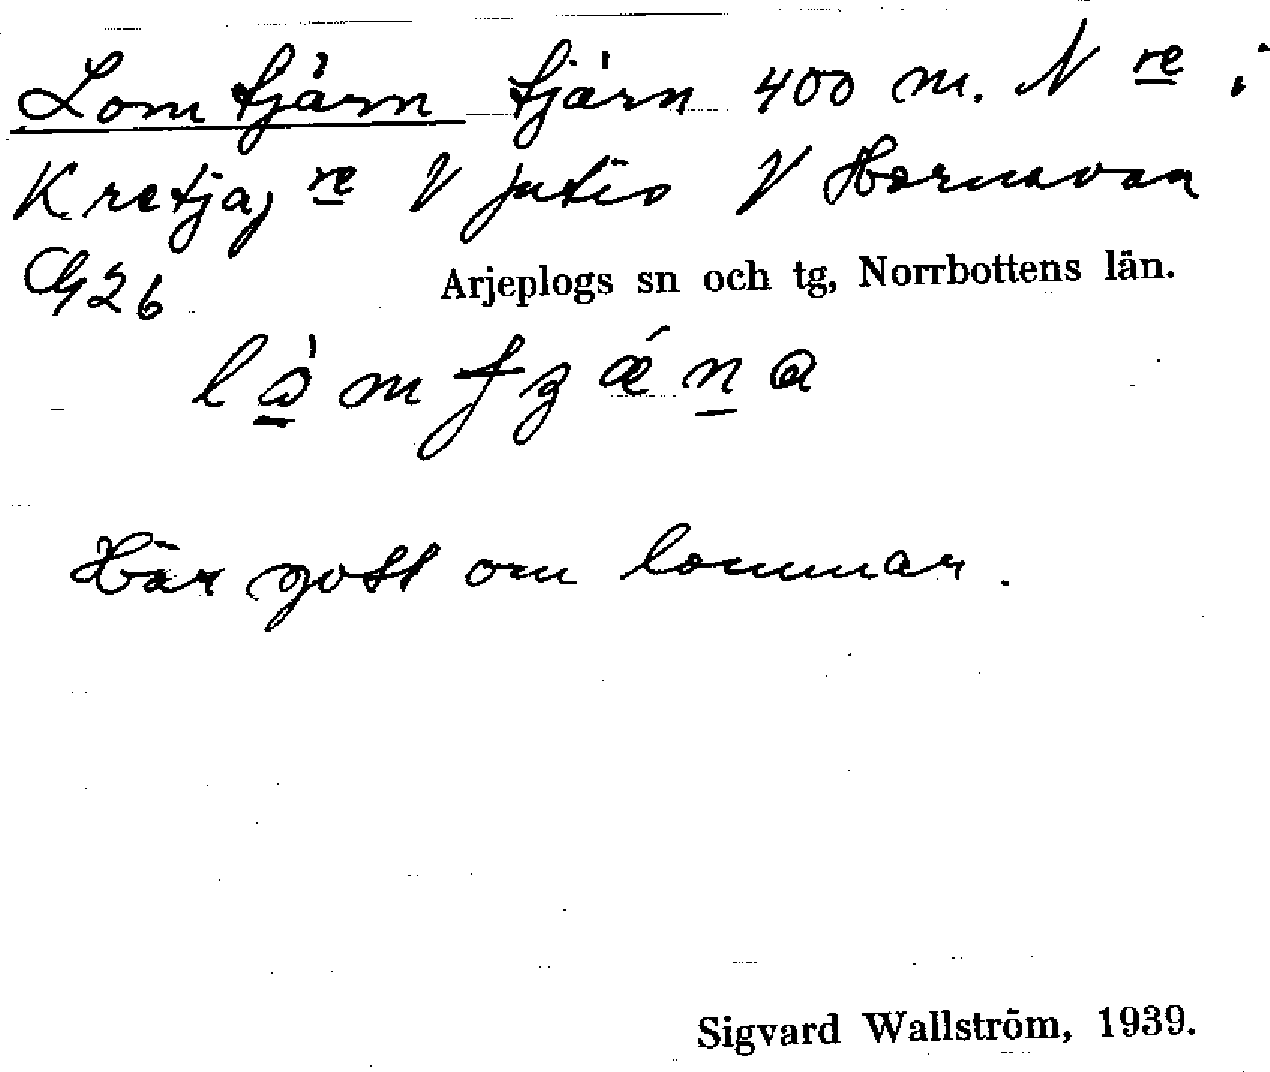 Lomtjärn tjärn 400 m. N re i
Kretja, re V Jutis V Hornavan
G26 Arjeplogs sn och tg, Norrbottens län.
Här gott om lommar.
Sigvard Wallström, 1939.